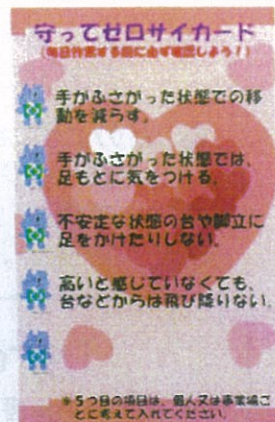 守ってゼロサイカード
(毎日作業する前に必ず確認しよう!)
手がふさがった状態での移
動を減らす。
手がふさがった状態では、
足もとに気をつける。
不安定な状態の台や脚立に
足をかけたりしない。
高いと感じていなくても、
台などからは飛び降りない。
*5つ目の項目は、個人又は事業場ご
とに考えて入れてください。